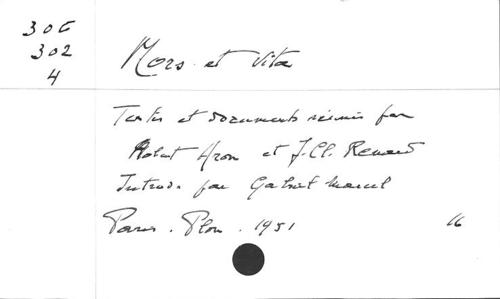 306
302
4
Mors et Vita
Textes et documents réunis par
Robert Aron et J. Cl. Renard
Introd. par Gabriel Marcel
Paris. Plon. 1951
16